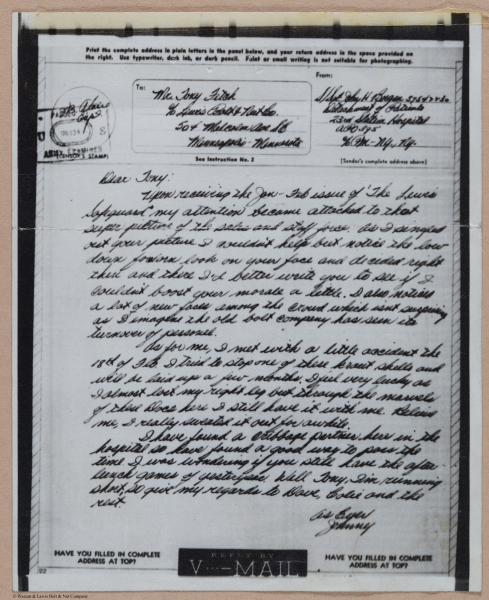 Print the complete address in plain letters in the panel below, and your return address in the space provided on
the right. Use typewriter, dark ink, or dark pencil. Faint or small writing is not suitable for photographing.
To:
From:
Mr. Tony Fitch
% Lewis Bolt & Nut Co.
504 Malcolm Ave SE
Minneapolis - Minnesota
Detachment of Patients
23rd Station Hospital
APO 595
% PM - NY, NY.
(CENSOR'S STAMP)
See Instruction No. 2
(Sender's complete address above)
Dear Tony:
Upon receiving the Jan-Feb issue of "The Lewis
Safeguard" my attention became attached to that
super picture of the sales and staff force. As I singled
out your picture I couldn't help but notice the low-
down forlorn look on your face and decided right
then and there I'd better write you to see if I
couldn't boost your morale a little. I also noticed
a lot of new faces among the crowd which isn't surprising
as I imagine the old bolt company has seen its
turnover of personel.
As for me, I met with a little accident the
18th of Feb. I tried to stop one of these kraut shells and
will be laid up a few months. I feel very lucky as
I almost lost my right leg but through the marvels
of these Docs here I still have it with me. Believe
me, I really sweated it out for awhile.
I have found a cribbage partner here in the
hospital so have found a good way to pass the
time. I was wondering if you still have the after
lunch games of yesteryear. Well Tony, I'm running
short, so give my regards to Dave, and the
rest.
As Ever
Johnny
HAVE YOU FILLED IN COMPLETE
ADDRESS AT TOP?
REPLY BY
V···-MAIL
HAVE YOU FILLED IN COMPLETE
ADDRESS AT TOP?